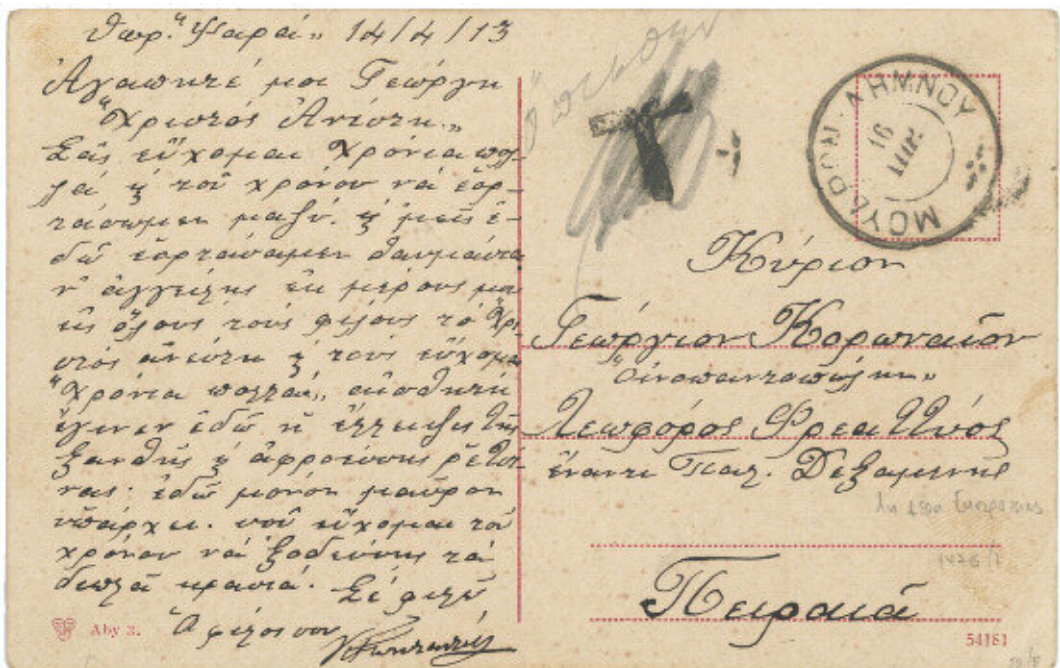 Θωρ. "Ψαρά" 14/4/13
Ἀγαπητέ μοι Γεώργη
"Χριστός Ἀνέστη"
Σᾶς εὔχομαι Χρόνια πολ-
λά & τοῦ χρόνου νά ἑορ-
τάσωμεν μαζύ. & μεῖς ἐ-
δῶ ἑορτάσαμεν θαυμάσια
ν' ἀγγείλης ἐκ μέρους μου
εἰς ὅλους τούς φίλους τό Χρι-
στός ἀνέστη & τούς εὔχομαι
"Χρόνια πολλά" αἰσθητή
ἔγινεν ἐδῶ ἡ ἔλλειψις τῆς
ξανθῆς & ἀφροειδοῦς ρετσί-
νας. ἐδῶ μόνον μαῦρον
ὑπάρχει. σοῦ εὔχομαι τοῦ
χρόνου νά ξοδεύσης τά
διπλᾶ κρασιά. Σέ φιλῶ
Ὁ φίλος σου
Aby 3.
ΜΟΥΔΡΟΝ - ΛΗΜΝΟΥ
16 ΑΠΡ
Κύριον
Γεώργιον Κορωναῖον
"Οἰνοπαντοπώλην"
Λεωφόρος Φρεαττύος
ἔναντι Παλ. Δεξαμενῆς
Πειραιᾶ
54181